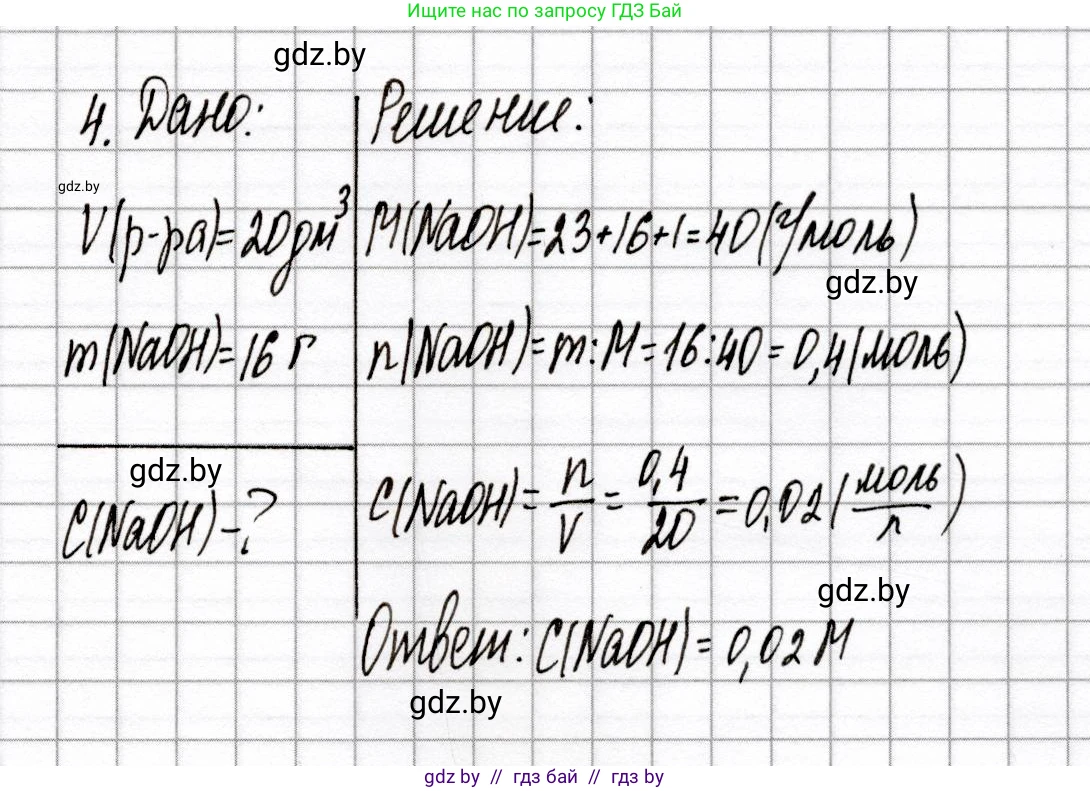 Ищите нас по запросу ГДЗ Бай
gdz.by
4. Дано:
gdz.by
V(р-ра)=20дм³
m(NaOH)=16 г
gdz.by
C(NaOH)-?
Решение:
M(NaOH)=23+16+1=40(г/моль)
gdz.by
n(NaOH)=m:M=16:40=0,4(моль)
C(NaOH)=n/V=0,4/20=0,02(моль/л)
gdz.by
Ответ: C(NaOH)=0,02 М
gdz.by
gdz by // гдз бай // гдз by